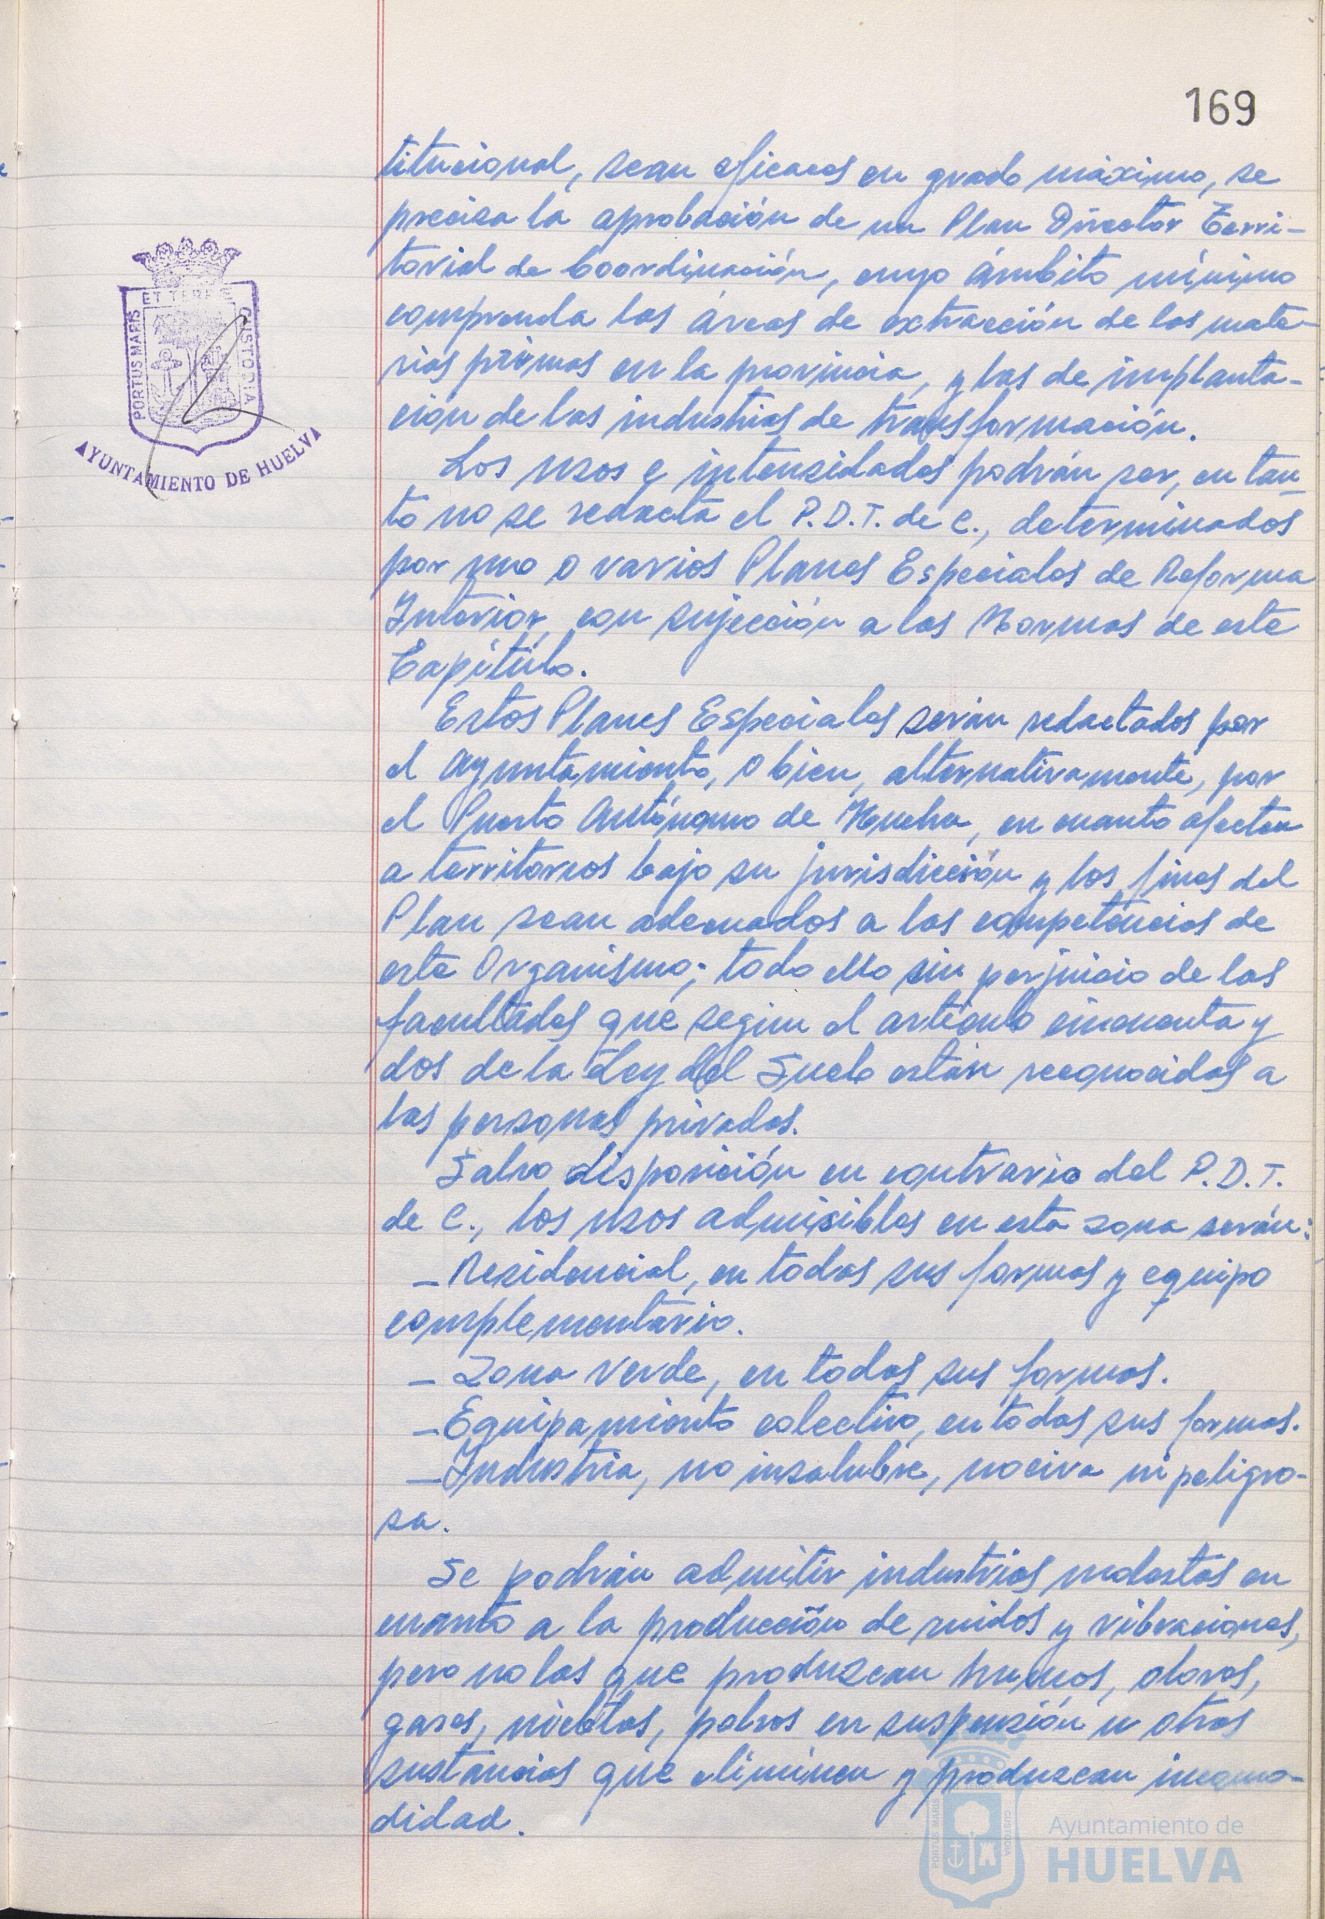 169
titucional, sean eficaces en grado máximo, se
precisa la aprobación de un Plan Director Terri-
torial de Coordinación, cuyo ámbito mínimo
comprenda las áreas de extracción de las mate-
rias primas en la provincia, y las de implanta-
ción de las industrias de transformación.
Los usos e intensidades podrán ser, en tan-
to no se redacta el P.D.T. de C., determinados
por uno o varios Planes Especiales de Reforma
Interior, con sujección a las Normas de este
Capítulo.
Estos Planes Especiales serán redactados por
el Ayuntamiento, o bien, alternativamente, por
el Puerto Autónomo de Huelva, en cuanto afecten
a territorios bajo su jurisdicción y los fines del
Plan sean adecuados a las competencias de
este Organismo; todo ello sin perjuicio de las
facultades que según el artículo cincuenta y
dos de la Ley del Suelo están reconocidas a
las personas privadas.
Salvo disposición en contrario del P.D.T.
de C., los usos admisibles en esta zona serán:
- Residencial, en todas sus formas y equipo
complementario.
- Zona verde, en todas sus formas.
- Equipamiento colectivo, en todas sus formas.
- Industria, no insalubre, nociva ni peligro-
sa.
Se podrán admitir industrias molestas en
cuanto a la producción de ruidos y vibraciones,
pero no las que produzcan humos, olores,
gases, nieblas, polvos en suspensión u otras
sustancias que eliminen y produzcan incomo-
didad.
PORTUS MARIS
ET TERRE
CUSTODIA
AYUNTAMIENTO DE HUELVA
PORTUS MARIS
CUSTODIA
Ayuntamiento de
HUELVA